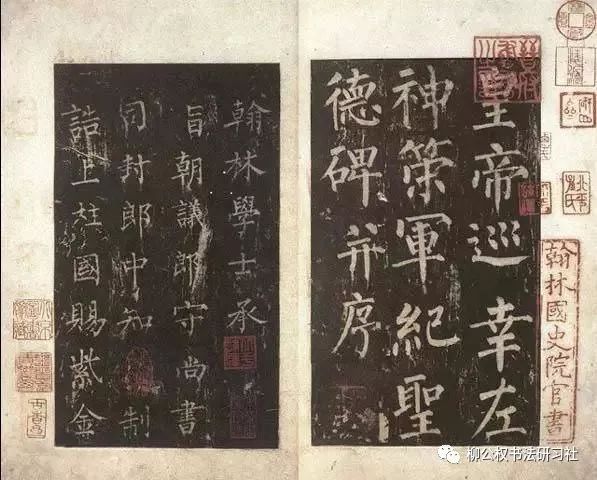 皇帝巡幸左
神策軍紀聖
德碑并序
翰林國史院官書
翰林學士承
旨朝議郎守尚書
司封郎中知制
誥上柱國賜紫金
柳公权书法研习社